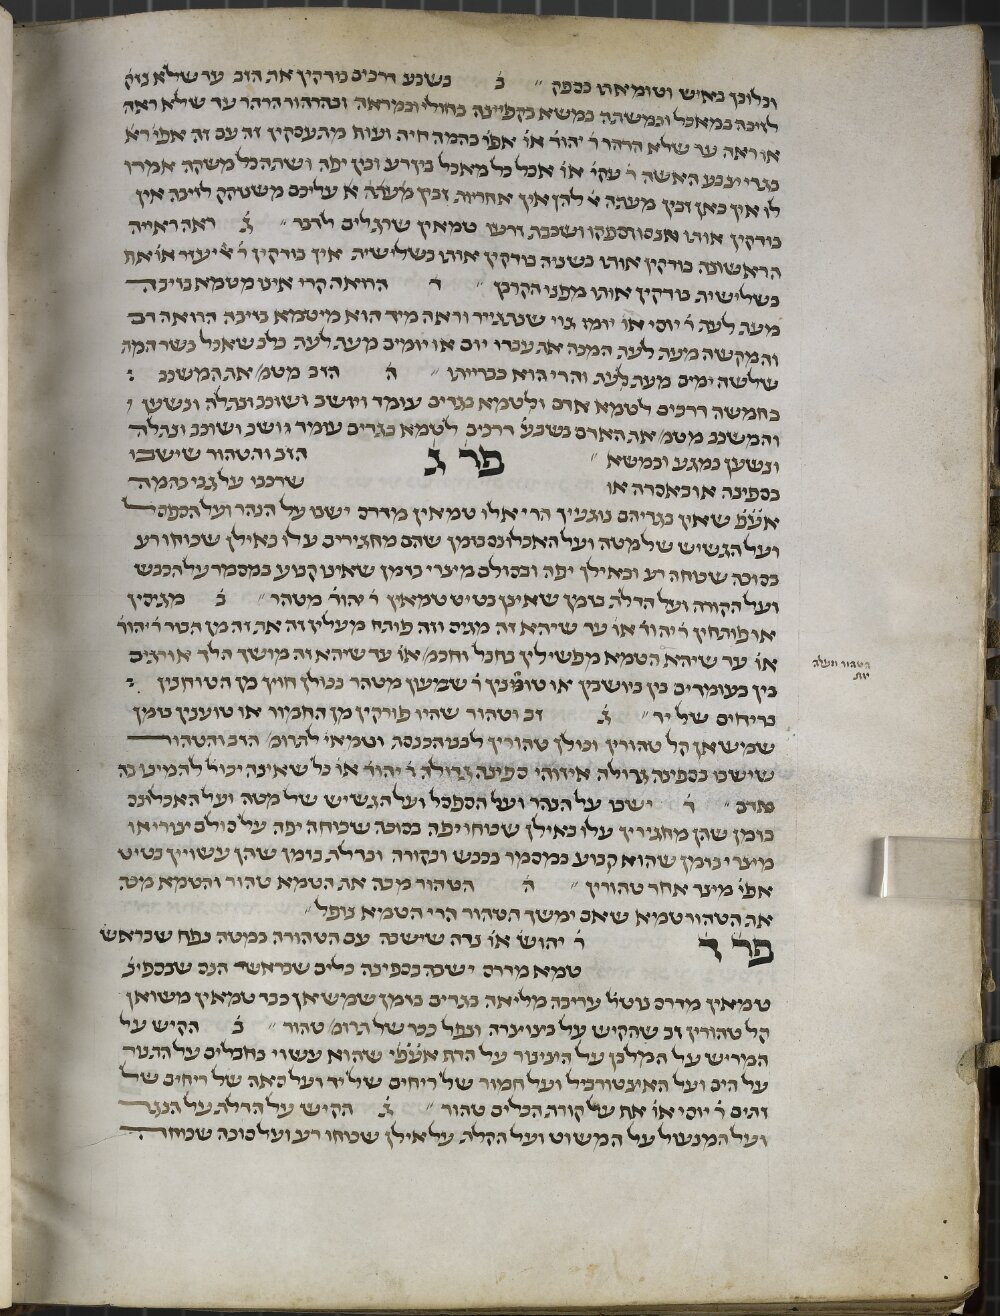 וכולכן באיש וטומיאתו בספק ״ ב בשבע דרכים בודקין את הזב עד שלא נזק
לזיבה במאכל ובמשתה במשא בקפיצה בחולי ובמראה ובהרהור הרהר עד שלא ראה
או ראה עד שלא הרהר ר׳ יהוד׳ או׳ אפי׳ בהמה חיה ועוף מתעסקין זה עם זה אפי׳ רא׳
בגדי צבע האשה ר׳ עקי׳ או׳ אכל כל מאכל בין רע ובין יפה ושתה כל משקה אמרו
לו אין כאן זבין מעתה א׳ להן אין אחריות זבין מעתה א׳ עליכם משנזקק לזיבה אין
בודקין אותו אנסו וספקו ושכבת זרעו טמאין שרגלים לדבר ״ ג ראה ראייה
הראשונה בודקין אותו בשניה בודקין אותו בשלישית אין בודקין ר׳ ליעזר או׳ אף
בשלישית בודקין אותו מפני הקרבן ״ ד הרואה קרי אינו מטמא בזיבה
מעת לעת ר׳ יוסי או׳ יומו גוי שנתגייר וראה מיד הוא מיטמא בזיבה הרואה דם
והמקשה מעת לעת המכה את עבדו יום או יומים מעת לעת כלב שאכל בשר המת
שלשה ימים מעת לעת והרי הוא כברייתו ״ ה הזב מטמ׳ את המשכב :
בחמשה דרכים לטמא אדם ולטמא בגדים עומד ויושב ושוכב ונתלה ונשען
והמשכב מטמ׳ את האדם בשבע׳ דרכים לטמא בגדים עומד יושב ושוכב ונתלה
ונשען במגע ובמשא ״ פר׳ ג הזב והטהור שישבו
בספינה או באסדה או שרכבו על גבי בהמה
אע׳פ׳ שאין בגדיהם נוגעין הרי אלו טמאין מדרס ישבו על הנסר ועל הספסל
ועל הגשיש של מטה ועל האכלונס בזמן שהם מחגירים עלו באילן שכוחו רע
בסוכה שכוחה רע ובאילן יפה ובסולם מיצרי בזמן שאינו קבוע במסמר על הכבש
ועל הקורה ועל הדלת בזמן שאינן בטיט טמאין ר׳ יהוד׳ מטהר ״ ב מגיפין
או פותחין ר׳ יהוד׳ או׳ עד שיהא זה מגיף וזה פותח מעלין זה את זה מן הבור ר׳ יהוד׳
או׳ עד שיהא הטמא מפשילין בחבל וחכמ׳ או׳ עד שיהא זה מושך הלך אורגים
בין בעומדים בין ביושבין או טוחנין ר׳ שמעון מטהר בכולן חוץ מן הטוחנין :
בריחים של יד ״ ג זב וטהור שהיו פורקין מן החמור או טוענין בזמן
שמשאן קל טהורין וכולן טהורין לבני הכנסת וטמאי׳ לתרומ׳ הזב והטהור
שישבו בספינה גדולה איזוהי ספינה גדולה ר׳ יהוד׳ או׳ כל שאינה יכול להמיט בה
אדם ״ ד ישבו על הנסר ועל הספסל ועל הגשיש של מטה ועל האכלונס
בזמן שהן מחגירין עלו באילן שכוחו יפה בסוכה שכוחה יפה על סולם צורי או
מיצרי בזמן שהוא קבוע במסמר בכבש ובקורה ובדלת בזמן שהן עשויין בטיט
אפי׳ מיצד אחד טהורין ״ ה הטהור מכה את הטמא טהור והטמא מכה
את הטהור טמא שאם ימשך הטהור הרי הטמא נופל ״
פר׳ ד ר׳ יהוש׳ או׳ נדה שישבה עם הטהורה במטה כפח שבראש׳
טמא מדרס ישבה בספינה כלים שבראש הנס שבספינ׳
טמאין מדרס נוטל עריבה מליאה בגדים בזמן שמשאן כבד טמאין משואן
קל טהורין זב שהקיש על כצוצרה ונפל ככר של תרומ׳ טהור ״ ב הקיש על
המריש על המלבן על הצינור על הדף אע׳פ׳י שהוא עשוי בחבלים על התנור
על הים ועל האיצטורביל ועל חמור של ריחים של יד ועל סאה של ריחים של
זתים ר׳ יוסי או׳ אף על קורת הבלים טהור ״ ג הקיש על הדלת על הנגר
ועל המנעול על המשוט ועל הקלת על אילן שכוחו רע ועל סוכה שכוחה